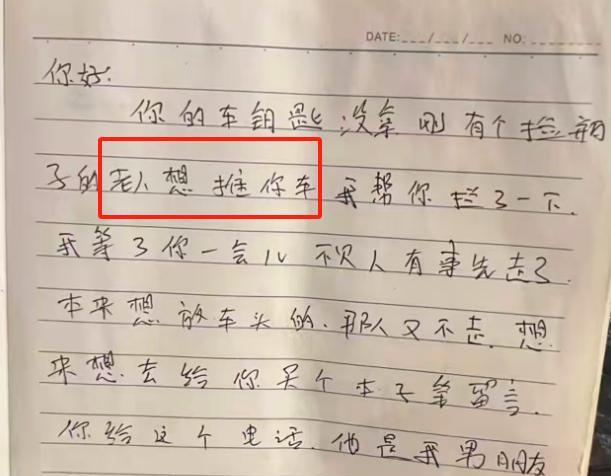 DATE:___/___/___ NO:________
你好:
你的车钥匙没拿刚有个捡瓶
子的老人想推你车我帮你拦了一下.
我等了你一会儿不见人有事先走了.
本来想放车头的.那人又不走.想
来想去给你买个本子笔留言.
你给这个电话.他是我男朋友